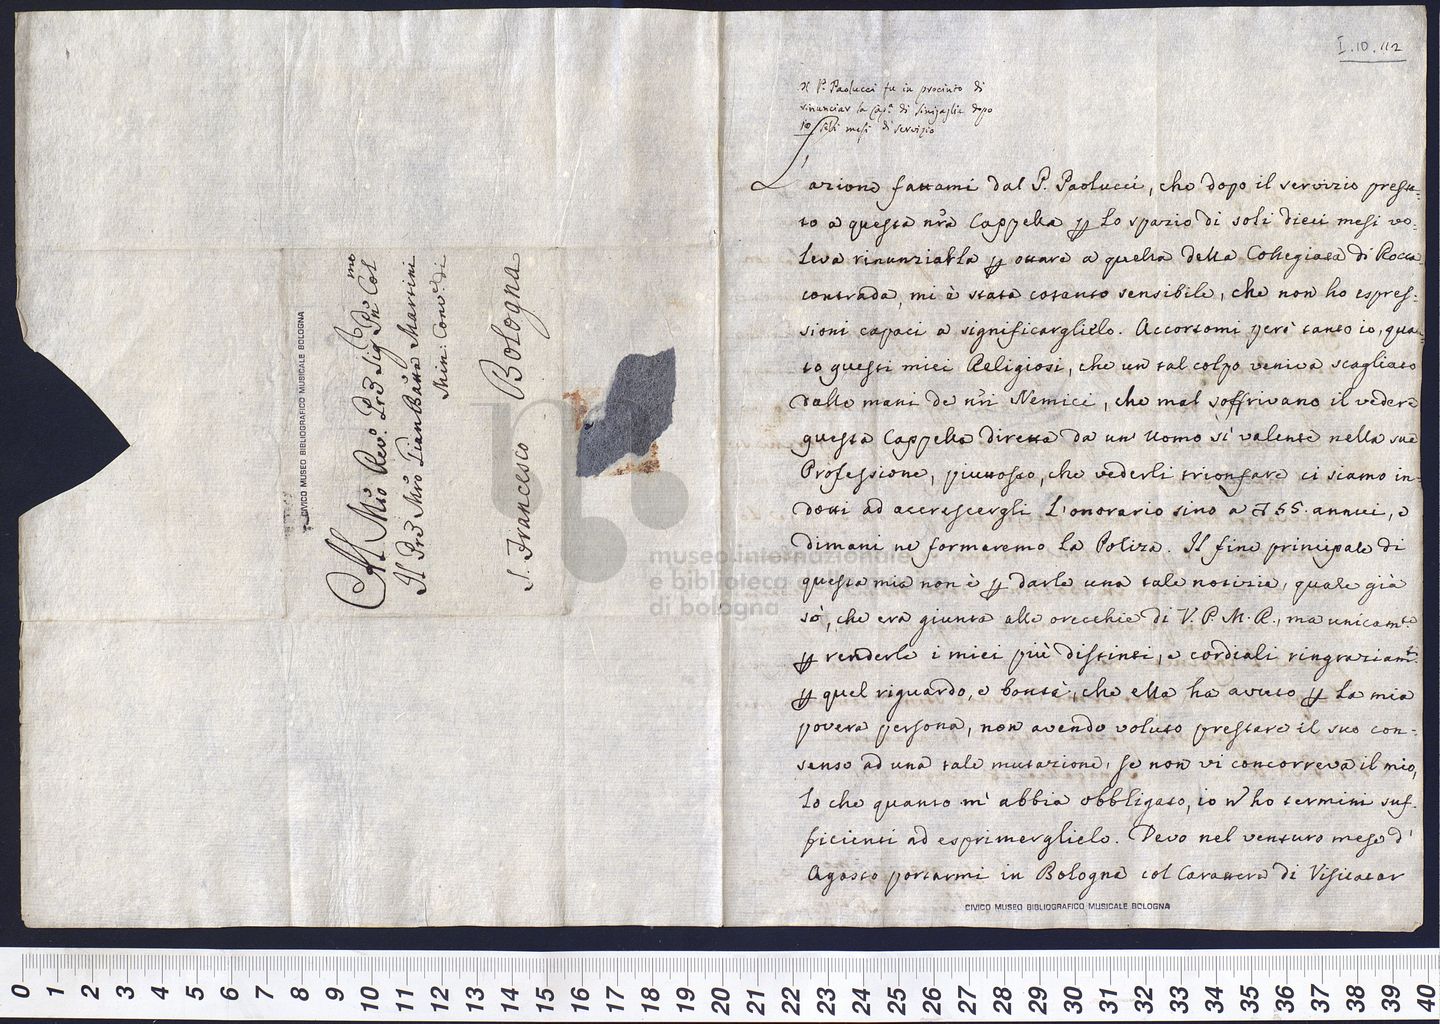 Al Mto Revdo Pre Sigr Pne Colmo
Il Pre Mro Gian Batta Martini
Min: Convle di
S. Francesco Bologna
CIVICO MUSEO BIBLIOGRAFICO MUSICALE BOLOGNA
I.10.112
Il P. Paolucci fu in procinto di
rinunciar la Capa di Sinigaglia dopo
10 mesi di servizio
L'azione fattami dal P. Paolucci, che dopo il servizio presta-
to a questa nra Cappella p lo spazio di soli dieci mesi vo-
leva rinunziarla p ottare a quella della Collegiata di Rocca
contrada, mi è stata cotanto sensibile, che non ho espres-
sioni capaci a significarglielo. Accortomi però tanto io, quan-
to questi miei Religiosi, che un tal colpo veniva scagliato
dalle mani de nri Nemici, che mal soffrivano il vedere
questa Cappella diretta da un' Uomo sì valente nella sua
Professione, piuttosto, che vederli trionfare ci siamo in-
dotti ad accrescergli l'onorario sino a 55. annui, e
dimani ne formaremo la Poliza. Il fine principale di
questa mia non è p darle una tale notizia, quale già
sò, che era giunta alle orecchie di V. P. M. R., ma unicamte
p renderle i miei più distinti, e cordiali ringraziamti
p quel riguardo, e bontà, che ella ha avuto p la mia
povera persona, non avendo voluto prestare il suo con-
senso ad una tale mutazione, se non vi concorreva il mio,
lo che quanto m' abbia obbligato, io n ho termini suf-
ficienti ad esprimerglielo. Devo nel venturo mese d'
Agosto portarmi in Bologna col Carattere di Visitator
CIVICO MUSEO BIBLIOGRAFICO MUSICALE BOLOGNA
museo internazionale
e biblioteca
di bologna
0 1 2 3 4 5 6 7 8 9 10 11 12 13 14 15 16 17 18 19 20 21 22 23 24 25 26 27 28 29 30 31 32 33 34 35 36 37 38 39 40